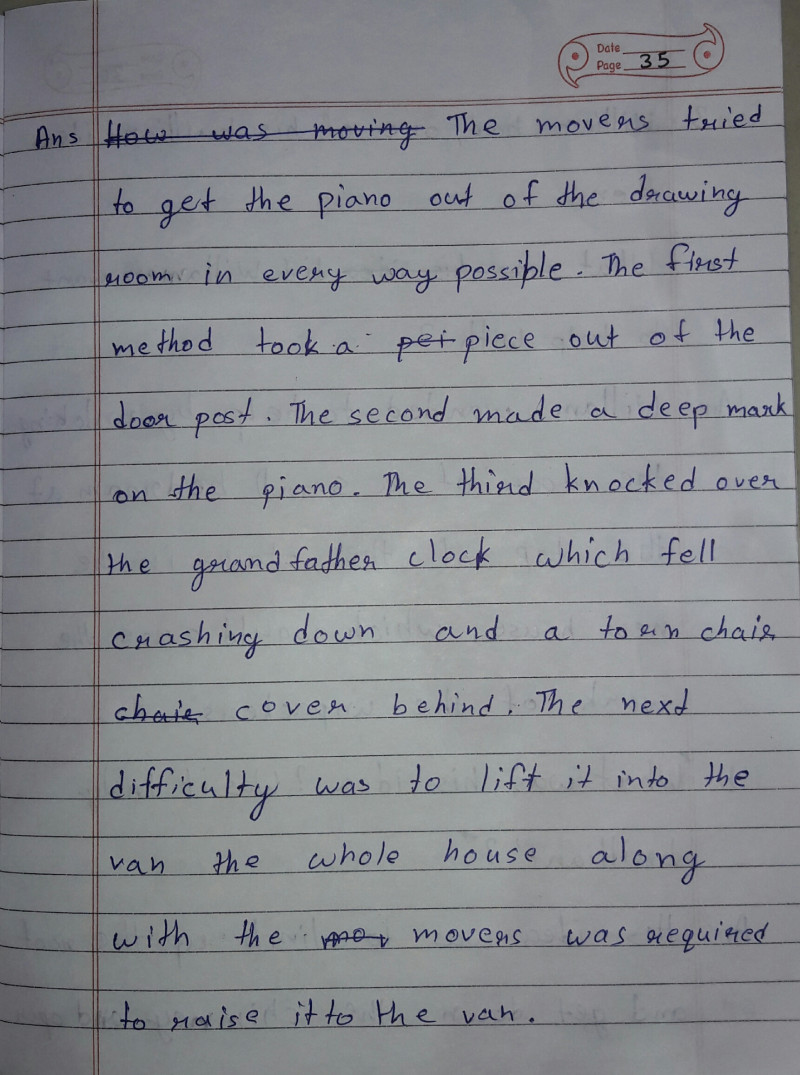 Date
Page 35
Ans How was moving The movers tried
to get the piano out of the drawing
room in every way possible. The first
method took a pei piece out of the
door post. The second made a deep mark
on the piano. The third knocked over
the grand father clock which fell
crashing down and a torn chair
chair cover behind. The next
difficulty was to lift it into the
van the whole house along
with the mov movers was required
to raise it to the van.